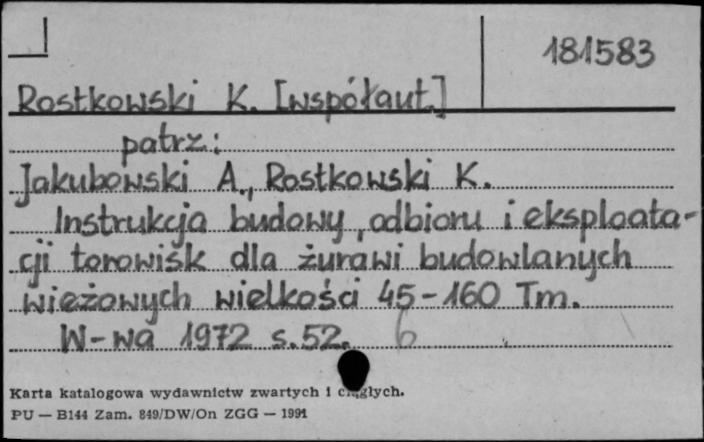 181583
Rostkowski K. [współaut.]
patrz:
Jakubowski A., Rostkowski K.
Instrukcja budowy, odbioru i eksploata-
cji torowisk dla żurawi budowlanych
wieżowych wielkości 45-160 Tm.
W-wa 1972 s.52. 6
Karta katalogowa wydawnictw zwartych i ciągłych.
PU — B144 Zam. 849/DW/On ZGG — 1991